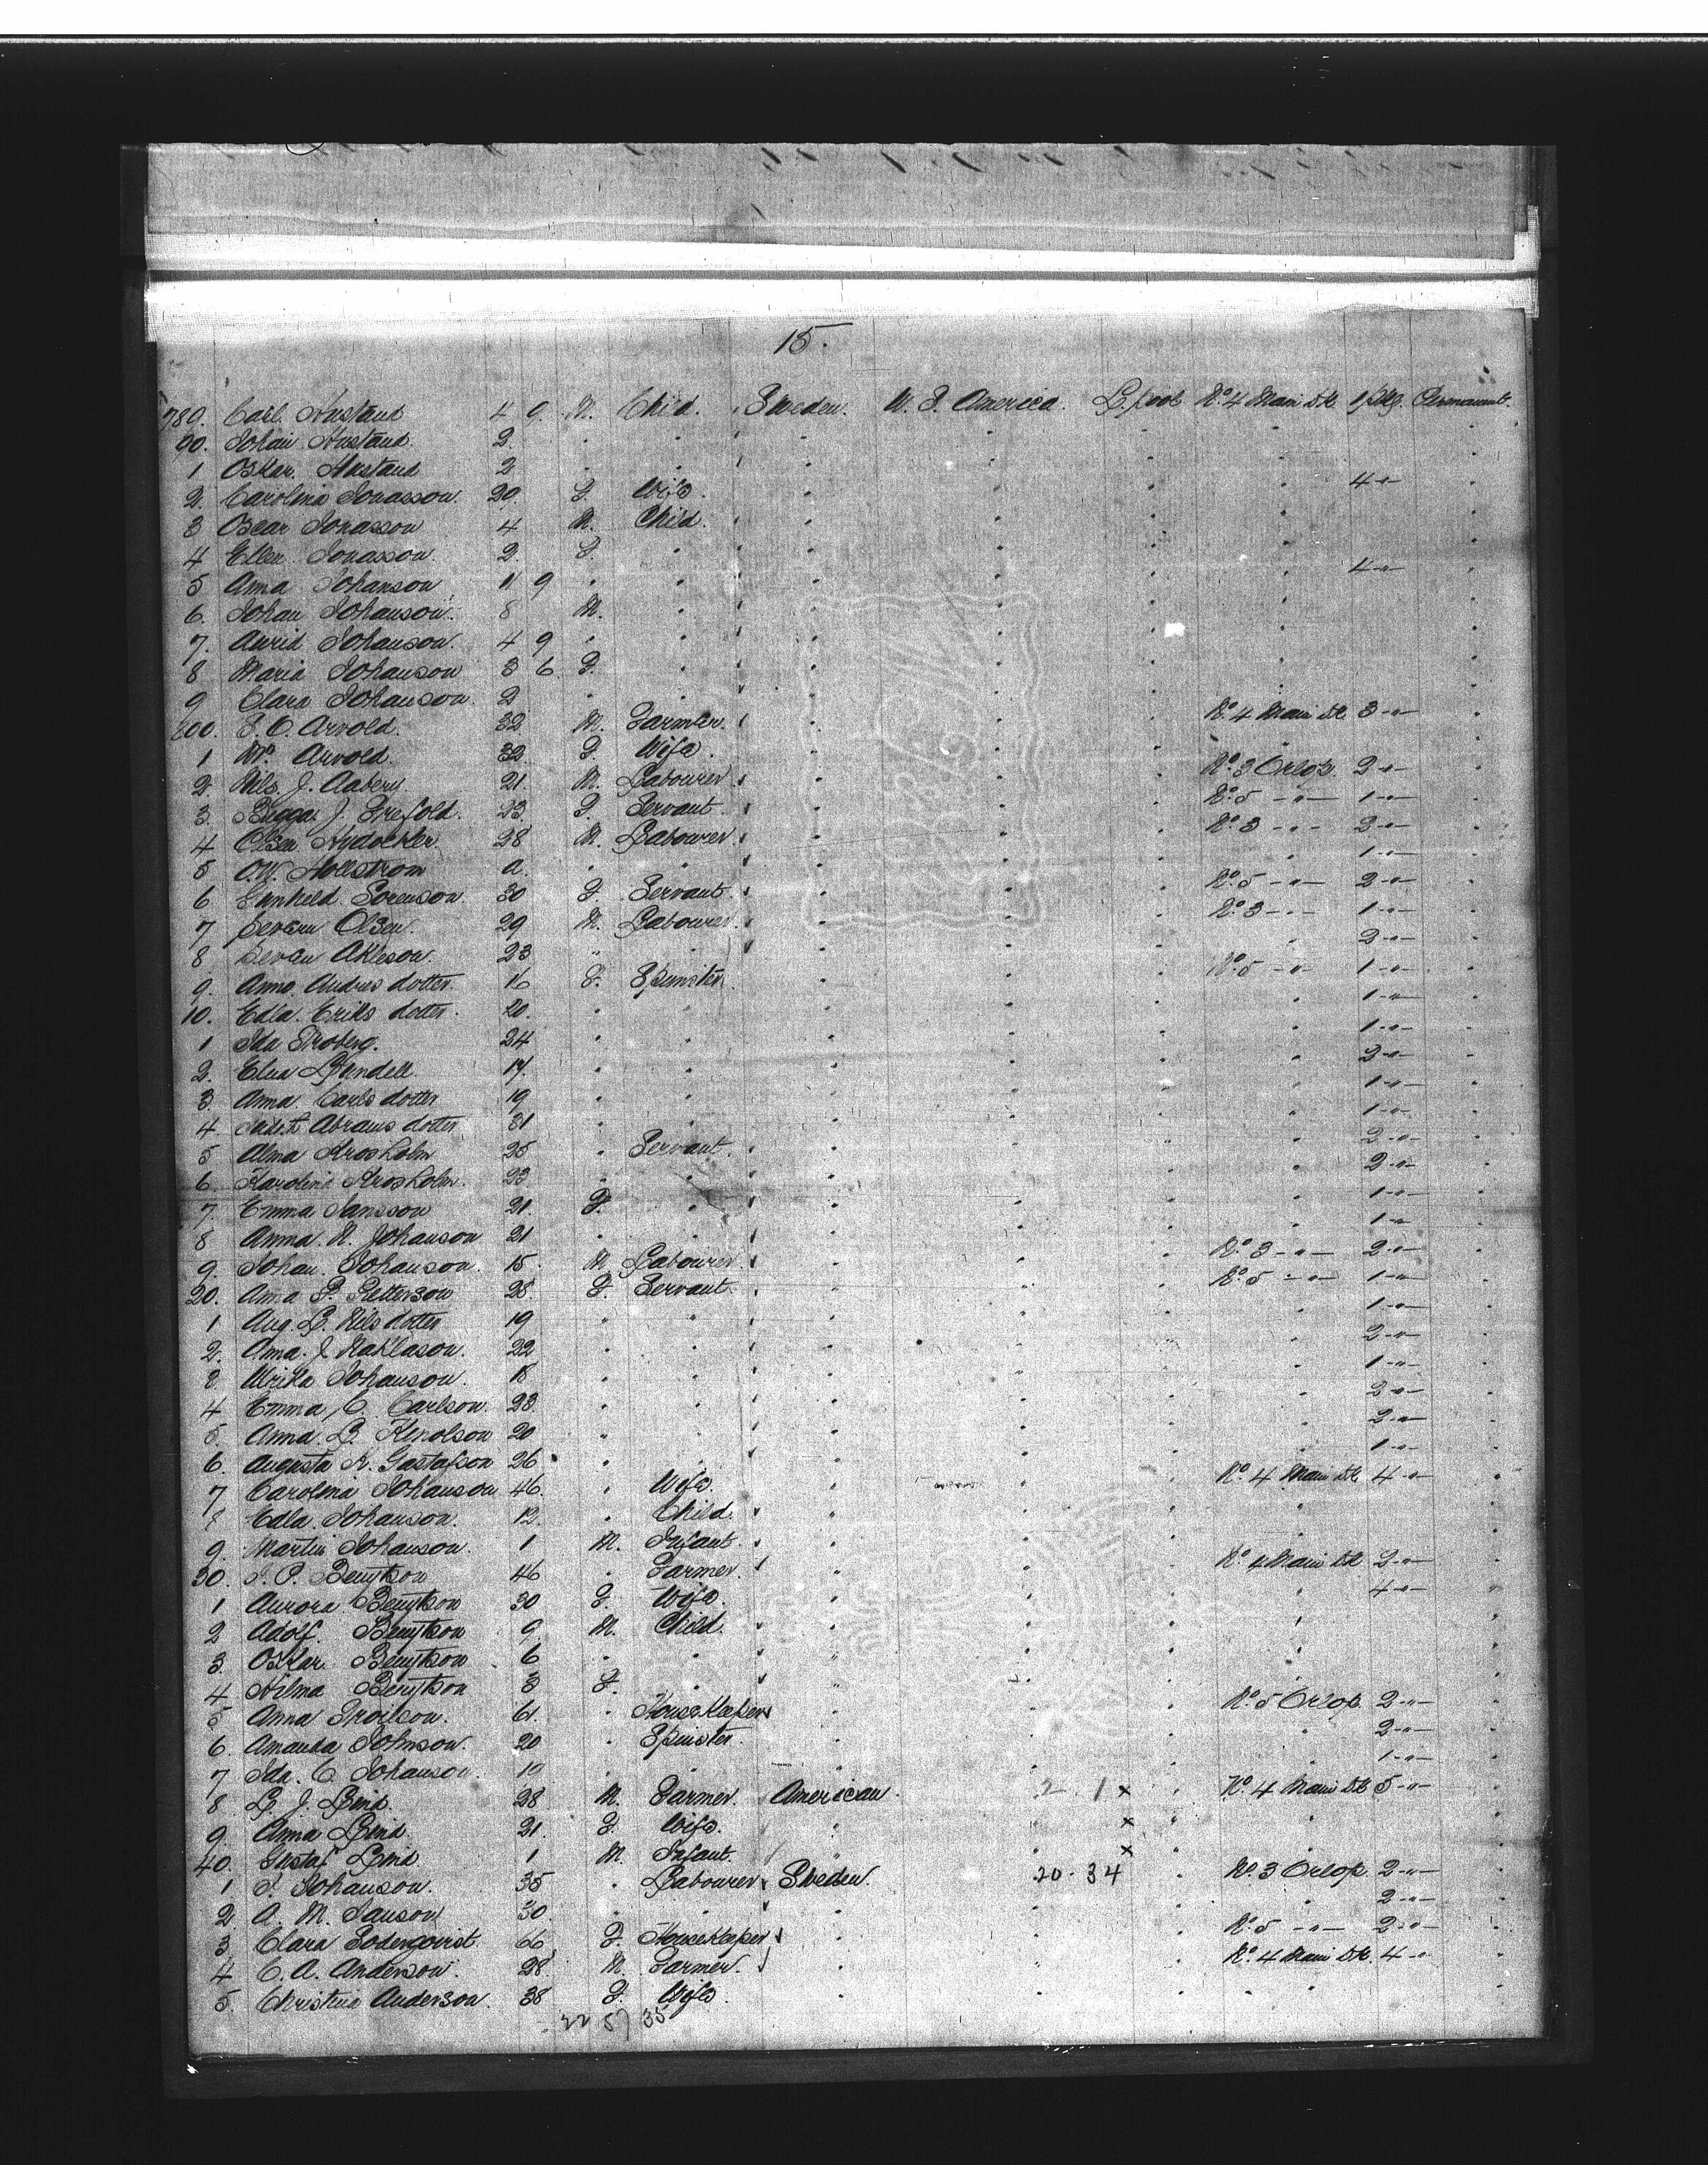 15.
780. Carl Hustand 4 9 M. Child. Sweden. U. S. America. L.pool No. 4 Main Dk 1 pkg. Permanent.
90. Johan Hustand. 2
1 Oskar. Hustand 2
2. Carolina Jonasson. 29 F. Wife. 4 -"-
3 Oscar Jonasson 4 M. Child.
4 Ellen Jonasson. 2 F.
5 Anna Johanson 11 9 4 -"-
6. Johan Johanson. 8 M.
7. Johanson. 4 9
8 Maria Johanson 3 6 F.
9 Clara Johanson 2
800. Arvold. 32 M. Farmer. No. 4 Main Dk 3 -"-
1 Mrs Arvold. 32 F. Wife.
2. Nils. J. Aabery. 21. M. Labourer No. 3 Orlop. 2 -"-
3. J. 23. F. Servant. No. 5 -"- 1 -"-
4 Olsen 28 M. Labourer No. 3 -"- 2 -"-
5 O.W. Hollstrom a. 1 -"-
6 Gunheld Sorenson. 30 F. Servant. No. 5 -"- 2 -"-
7 Olsen. 29 M. Labourer. No. 3 -"- 1 -"-
8 Akleson. 23 " 2 -"-
9. Anna Andresdotter. 16 F. Spinster. No. 5 -"- 1 -"-
10. Edla. Eriksdotter. 20. 1 -"-
1 Ida Froberg. 24 1 -"-
2. Lindell. 17. 2 -"-
3. Anna Carlsdotter 19 1 -"-
4 Abramsdotter 31 1 -"-
5 Alma Krosholm 25 Servant. 2 -"-
6. Karolina Krosholm. 23 2 -"-
7. Emma Jansson 21. F. 1 -"-
8 Anna. M. Johanson 21 1 -"-
9. Johan. Johanson. 15. M Labourer. No. 3 -"- 2 -"-
20. Anna P. Petterson 28. F. Servant. No. 5 -"- 1 -"-
1 Aug. L. Nilsdotter 19 " 1 -"-
2. Anna. J. 22 2 -"-
3. Ulrika Johanson. 18 1 -"-
4 Emma C. Carlson. 23. 2 -"-
5. Anna. L. 20 " 2 -"-
6. Augusta K. Gustafson 26 1 -"-
7 Carolina Johanson 46. Wife. No. 4 Main Dk 4 -"-
8 Edla. Johanson. 12. Child.
9. Martin Johanson. 1 M. Infant.
30. J. P. Bengtson 46 Farmer. No. 4 Main Dk 2 -"-
1 Aurora. Bengtson 30 F. Wife. 4 -"-
2 Adolf. Bengtson 9 M. Child.
3. Oskar Bengtson 6
4 Hilma Bengtson 3 F.
5 Anna 61. Housekeeper No. 5 Orlop 2 -"-
6. Amanda Johnson. 20 Spinster. 2 -"-
7 Ida. C. Johanson. 19 1 -"-
8 L. J. Lind. 28 M. Farmer. American. 2 1 x No. 4 Main Dk 5 -"-
9. Anna Lind. 21. F. Wife. x
40. Gustaf Lind 1 M. Infant. x
1 J. Johanson. 35 Labourer Sweden. 20-34 No. 3 Orlop. 2 -"-
2 A. M. Janson 30. 2 -"-
3. Clara Soderqvist 66 F. Housekeeper No. 5 -"- 2 -"-
4 C. A. Anderson. 28 M. Farmer. No. 4 Main Dk. 4 -"-
5. Christina Anderson. 38 F. Wife.
22 57 35